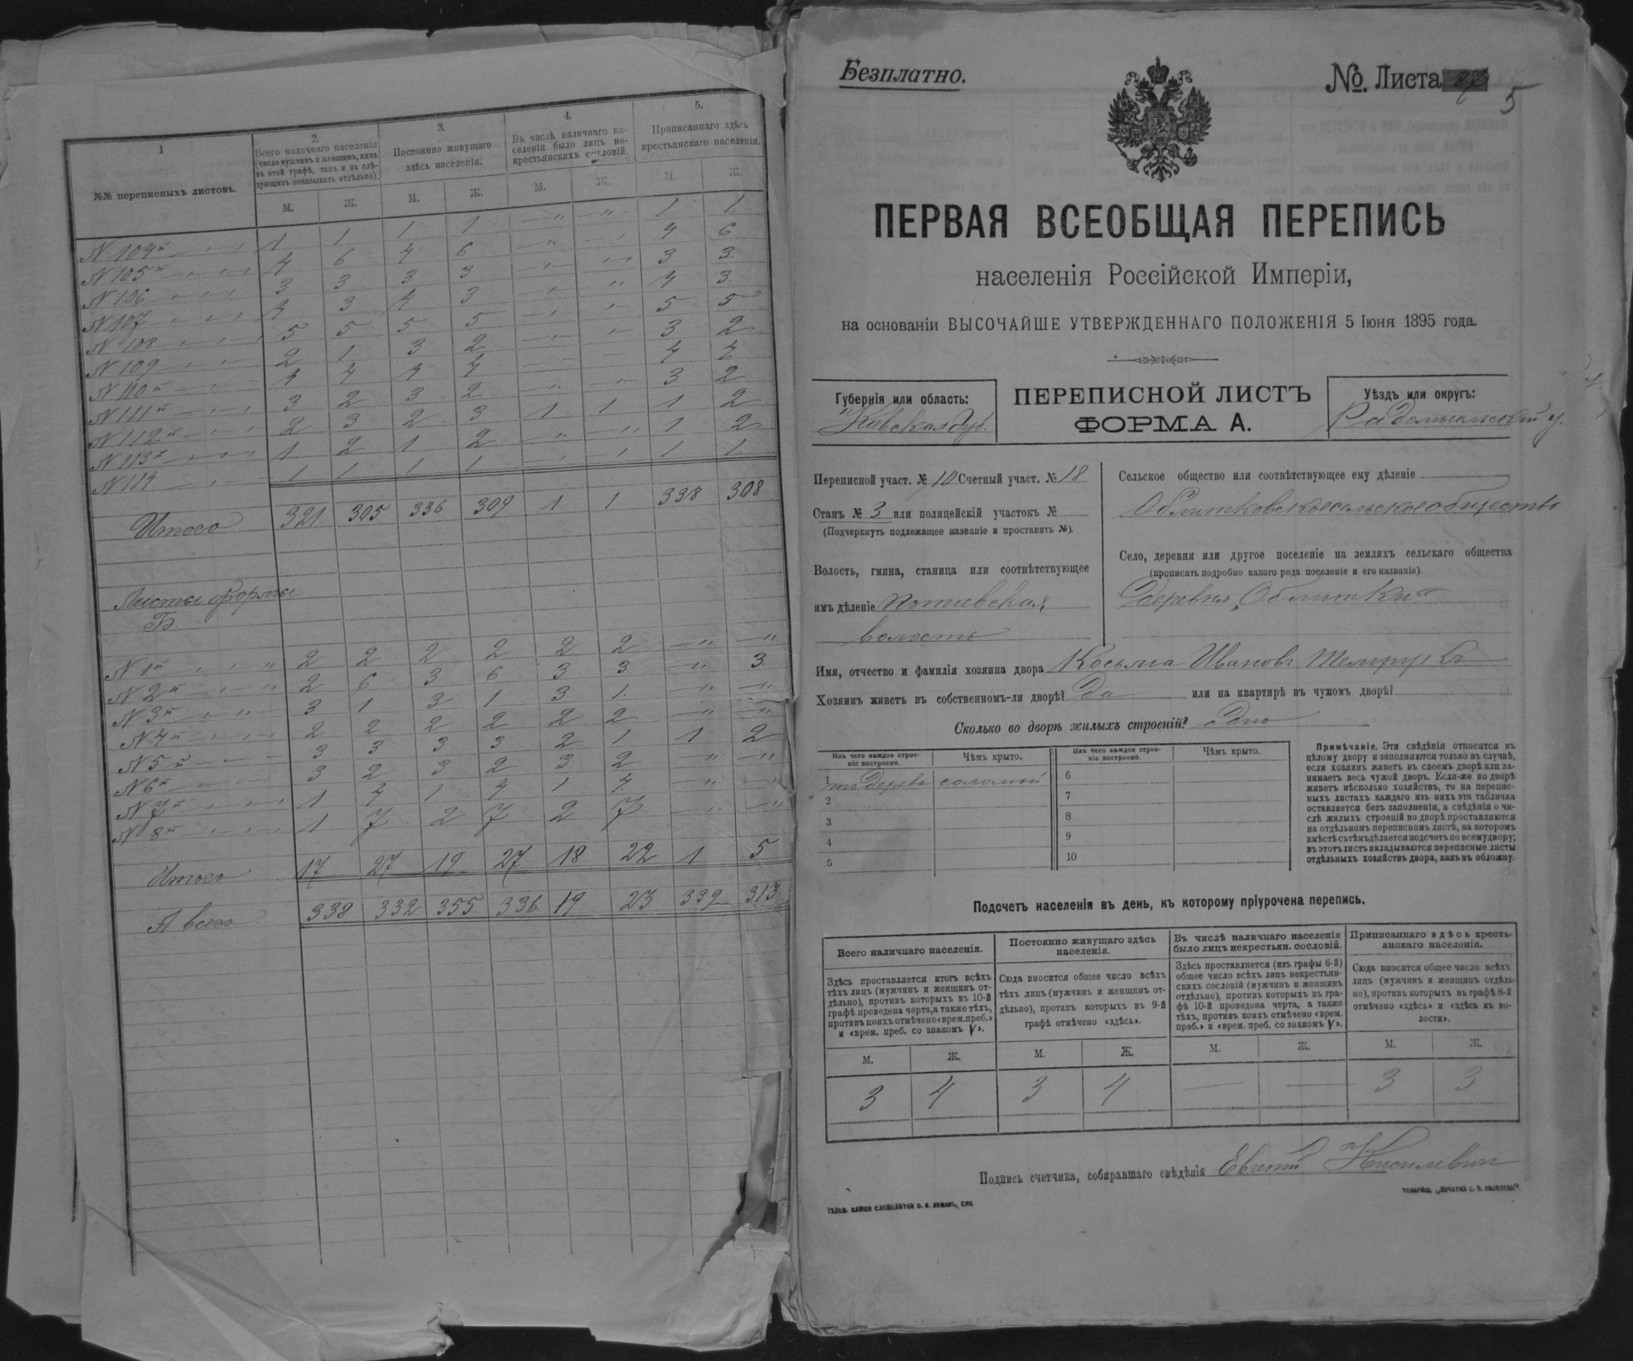 1
№№ переписныхъ листовъ.
2.
Всего наличнаго населенія
(число мужчинъ и женщинъ, какъ
въ этой графѣ, такъ и въ слѣ-
дующихъ показывать отдѣльно)
3.
Постоянно живущаго
здѣсь населенія.
4.
Въ числѣ наличнаго на-
селенія было лицъ не-
крестьянскихъ сословій.
5.
Приписаннаго здѣсь
крестьянскаго населенія.
М. Ж. М. Ж. М. Ж. М. Ж.
N 104й " " 1 1 1 1 " " 1 1
N 105й " " 4 6 4 6 " " 4 6
N 106 " " 3 3 3 3 " " 3 3
N 107 " " 4 3 4 3 " " 4 3
N 108 " " 5 5 5 5 " " 5 5
N 109 " " 2 1 3 2 " " 3 2
N 110й " " 4 4 4 4 4 4
N 111й " " 3 2 3 2 " " 3 2
N 112й " " 2 3 2 3 1 1 1 2
N 113й " " 1 2 1 2 " " 1 2
N 114 " " 1 1 1 1 " " 1 1
Итого 321 305 336 309 1 1 338 308
Листы формы
Б.
N 1й " " " 2 2 2 2 2 2 " "
N 2й " " " 2 6 3 6 3 3 " 3
N 3й " " " 3 1 3 1 3 1 " "
N 4й " " " 2 2 2 2 2 2 " "
N 5й " " 3 3 3 3 2 1 1 2
N 6й " " 3 2 3 2 3 2 " "
N 7й " " " 1 4 1 4 1 4 " "
N 8й " " " 1 7 2 7 2 7 " "
Итого 17 27 19 27 18 22 1 5
А всего 338 332 355 336 19 23 339 313
Безплатно.
№. Листа 5
ПЕРВАЯ ВСЕОБЩАЯ ПЕРЕПИСЬ
населенія Россійской Имперіи,
на основаніи ВЫСОЧАЙШЕ УТВЕРЖДЕННАГО ПОЛОЖЕНІЯ 5 Іюня 1895 года.
Губернія или область:
Кіевская Губ.
ПЕРЕПИСНОЙ ЛИСТЪ
ФОРМА А.
Уѣздъ или округъ:
Радомысльскій у.
Переписной участ. № 10 Счетный участ. № 18
Станъ № 3 или полицейскій участокъ №
(Подчеркнуть подлежащее названіе и проставить №).
Волость, гмина, станица или соотвѣтствующее
имъ дѣленіе Потіевская
волость
Сельское общество или соотвѣтствующее ему дѣленіе
Облитковское сельское общество
Село, деревня или другое поселеніе на земляхъ сельскаго общества
(прописать подробно какого рода поселеніе и его названіе).
Деревня „Облитки“
Имя, отчество и фамилія хозяина двора Косьма Ивановъ
Хозяинъ живетъ въ собственномъ-ли дворѣ? Да или на квартирѣ въ чужомъ дворѣ?
Сколько во дворѣ жилыхъ строеній? Одно
Изъ чего каждое строе-
ніе построено. Чѣмъ крыто. Изъ чего каждое строе-
ніе построено. Чѣмъ крыто.
1 изъ дерева соломой 6
2 7
3 8
4 9
5 10
Примѣчаніе. Эти свѣдѣнія относятся къ
цѣлому двору и заполняются только въ случаѣ,
если хозяинъ живетъ въ своемъ дворѣ или за-
нимаетъ весь чужой дворъ. Если-же во дворѣ
живетъ нѣсколько хозяйствъ, то на перепис-
ныхъ листахъ каждаго изъ нихъ эта табличка
оставляется безъ заполненія, а свѣдѣнія о чи-
слѣ жилыхъ строеній во дворѣ проставляются
на отдѣльномъ переписномъ листѣ, на которомъ
вмѣстѣ съ тѣмъ дѣлается подсчетъ по всему двору;
въ этотъ листъ вкладываются переписные листы
отдѣльныхъ хозяйствъ двора, какъ въ обложку.
Подсчетъ населенія въ день, къ которому пріурочена перепись.
Всего наличнаго населенія.
Здѣсь проставляется итогъ всѣхъ
тѣхъ лицъ (мужчинъ и женщинъ от-
дѣльно), противъ которыхъ въ 10-й
графѣ проведена черта, а также тѣхъ,
противъ коихъ отмѣчено «врем. преб.»
и «врем. преб. со знакомъ V».
Постоянно живущаго здѣсь
населенія.
Сюда вносится общее число всѣхъ
тѣхъ лицъ (мужчинъ и женщинъ от-
дѣльно), противъ которыхъ въ 9-й
графѣ отмѣчено «здѣсь».
Въ числѣ наличнаго населенія
было лицъ некрестьян. сословій.
Здѣсь проставляется (изъ графы 6-й)
общее число всѣхъ лицъ некрестьян-
скихъ сословій (мужчинъ и женщинъ
отдѣльно), противъ которыхъ въ гра-
фѣ 10-й проведена черта, а также
тѣхъ, противъ коихъ отмѣчено «врем.
преб.» и «врем. преб. со знакомъ V».
Приписаннаго здѣсь кресть-
янскаго населенія.
Сюда вносится общее число всѣхъ
лицъ (мужчинъ и женщинъ отдѣль-
но), противъ которыхъ въ графѣ 8-й
отмѣчено «здѣсь» и «здѣсь къ во-
лости».
М. Ж. М. Ж. М. Ж. М. Ж.
3 4 3 4 — — 3 3
Подпись счетчика, собиравшаго свѣдѣнія Евгеній